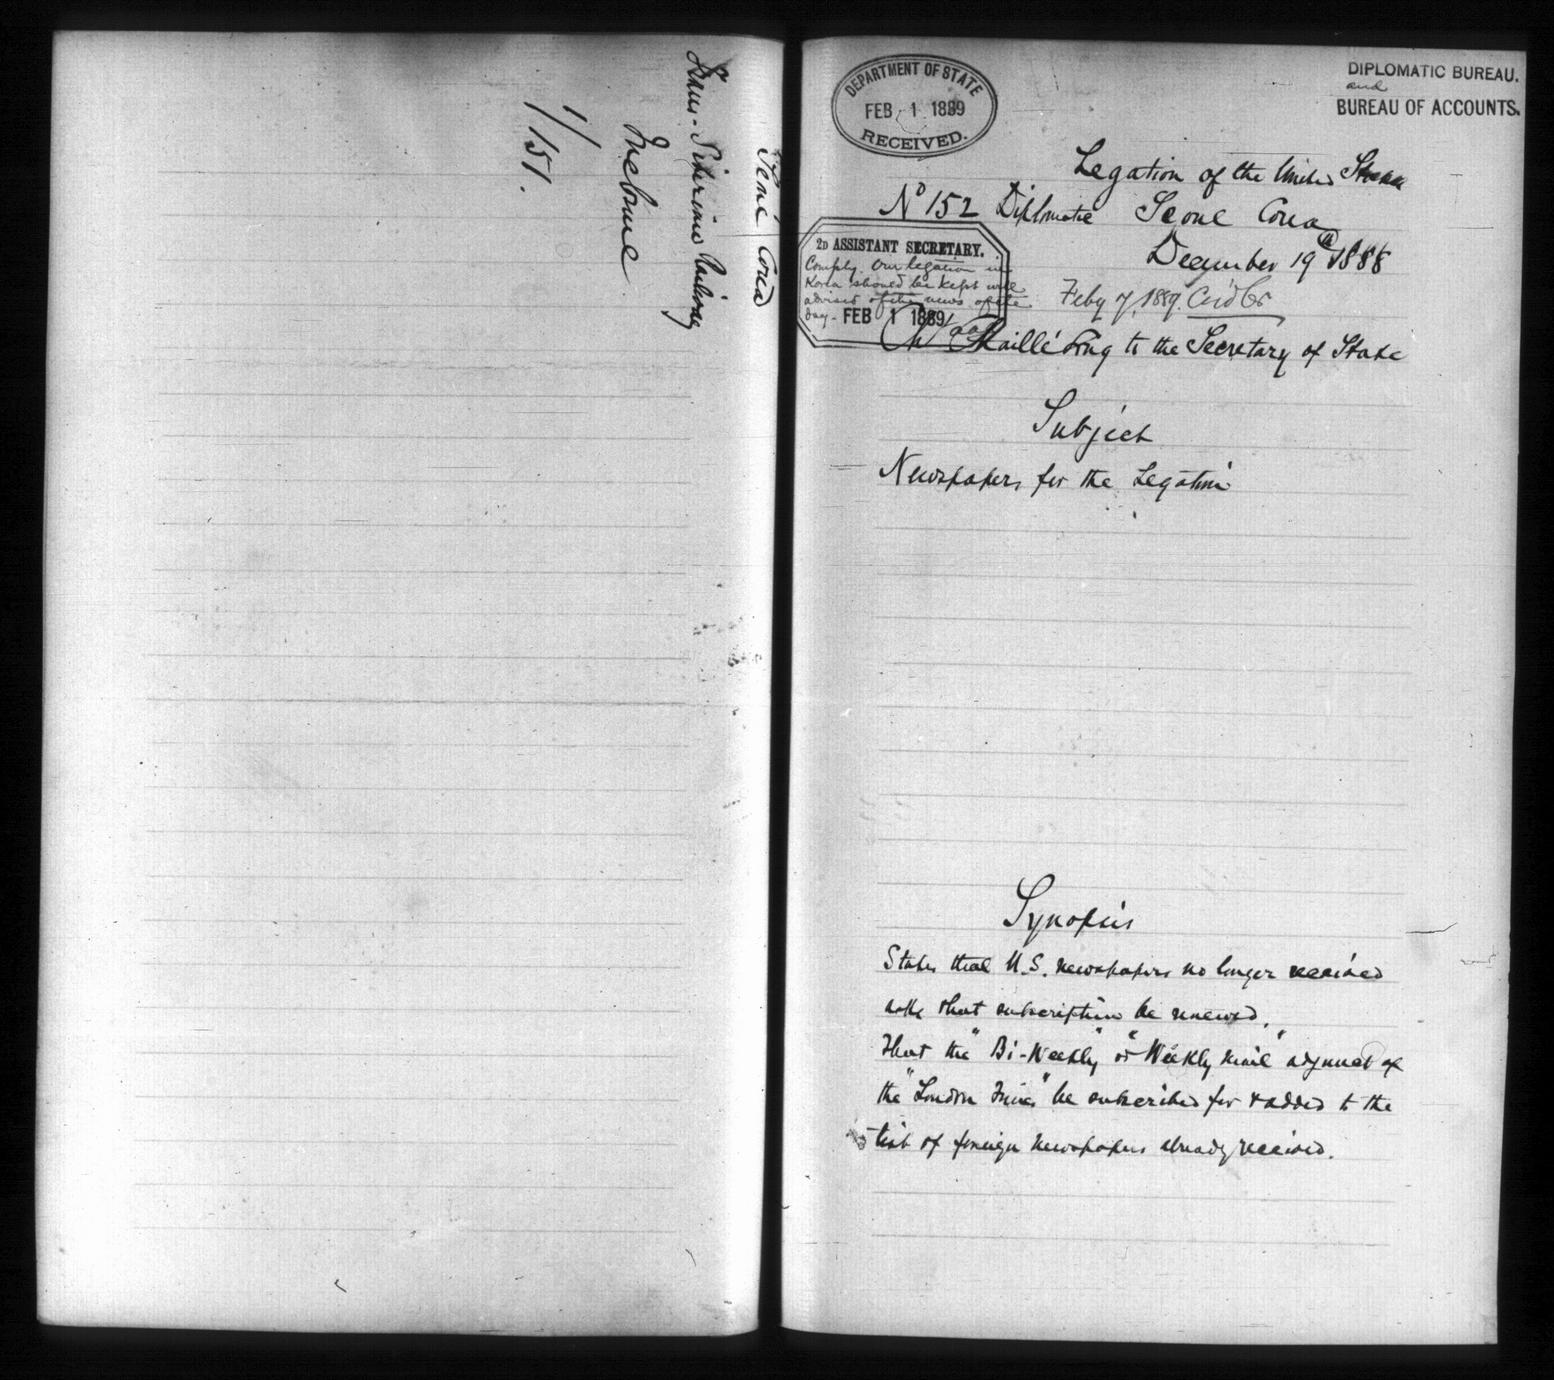 Seoul Corea
Trans-Siberian Railway
Inclosure
1/151.
DEPARTMENT OF STATE
FEB 1 1889
RECEIVED.
DIPLOMATIC BUREAU.
and
BUREAU OF ACCOUNTS.
Legation of the United States
No 152 Diplomatic Seoul Corea
December 19 1888
2D ASSISTANT SECRETARY.
Comply. Our legation in
Korea should be kept well
advised of the news of the
day.
FEB 1 1889
Feby 7, 1889.
Ch Chaillé Long to the Secretary of State
Subject
Newspapers for the Legation
Synopsis
States that U.S. newspapers no longer received
asks that subscription be renewed,
That the "Bi-Weekly" or "Weekly Mail" adjunct of
the "London Times" be subscribed for & added to the
list of foreign newspapers already received.